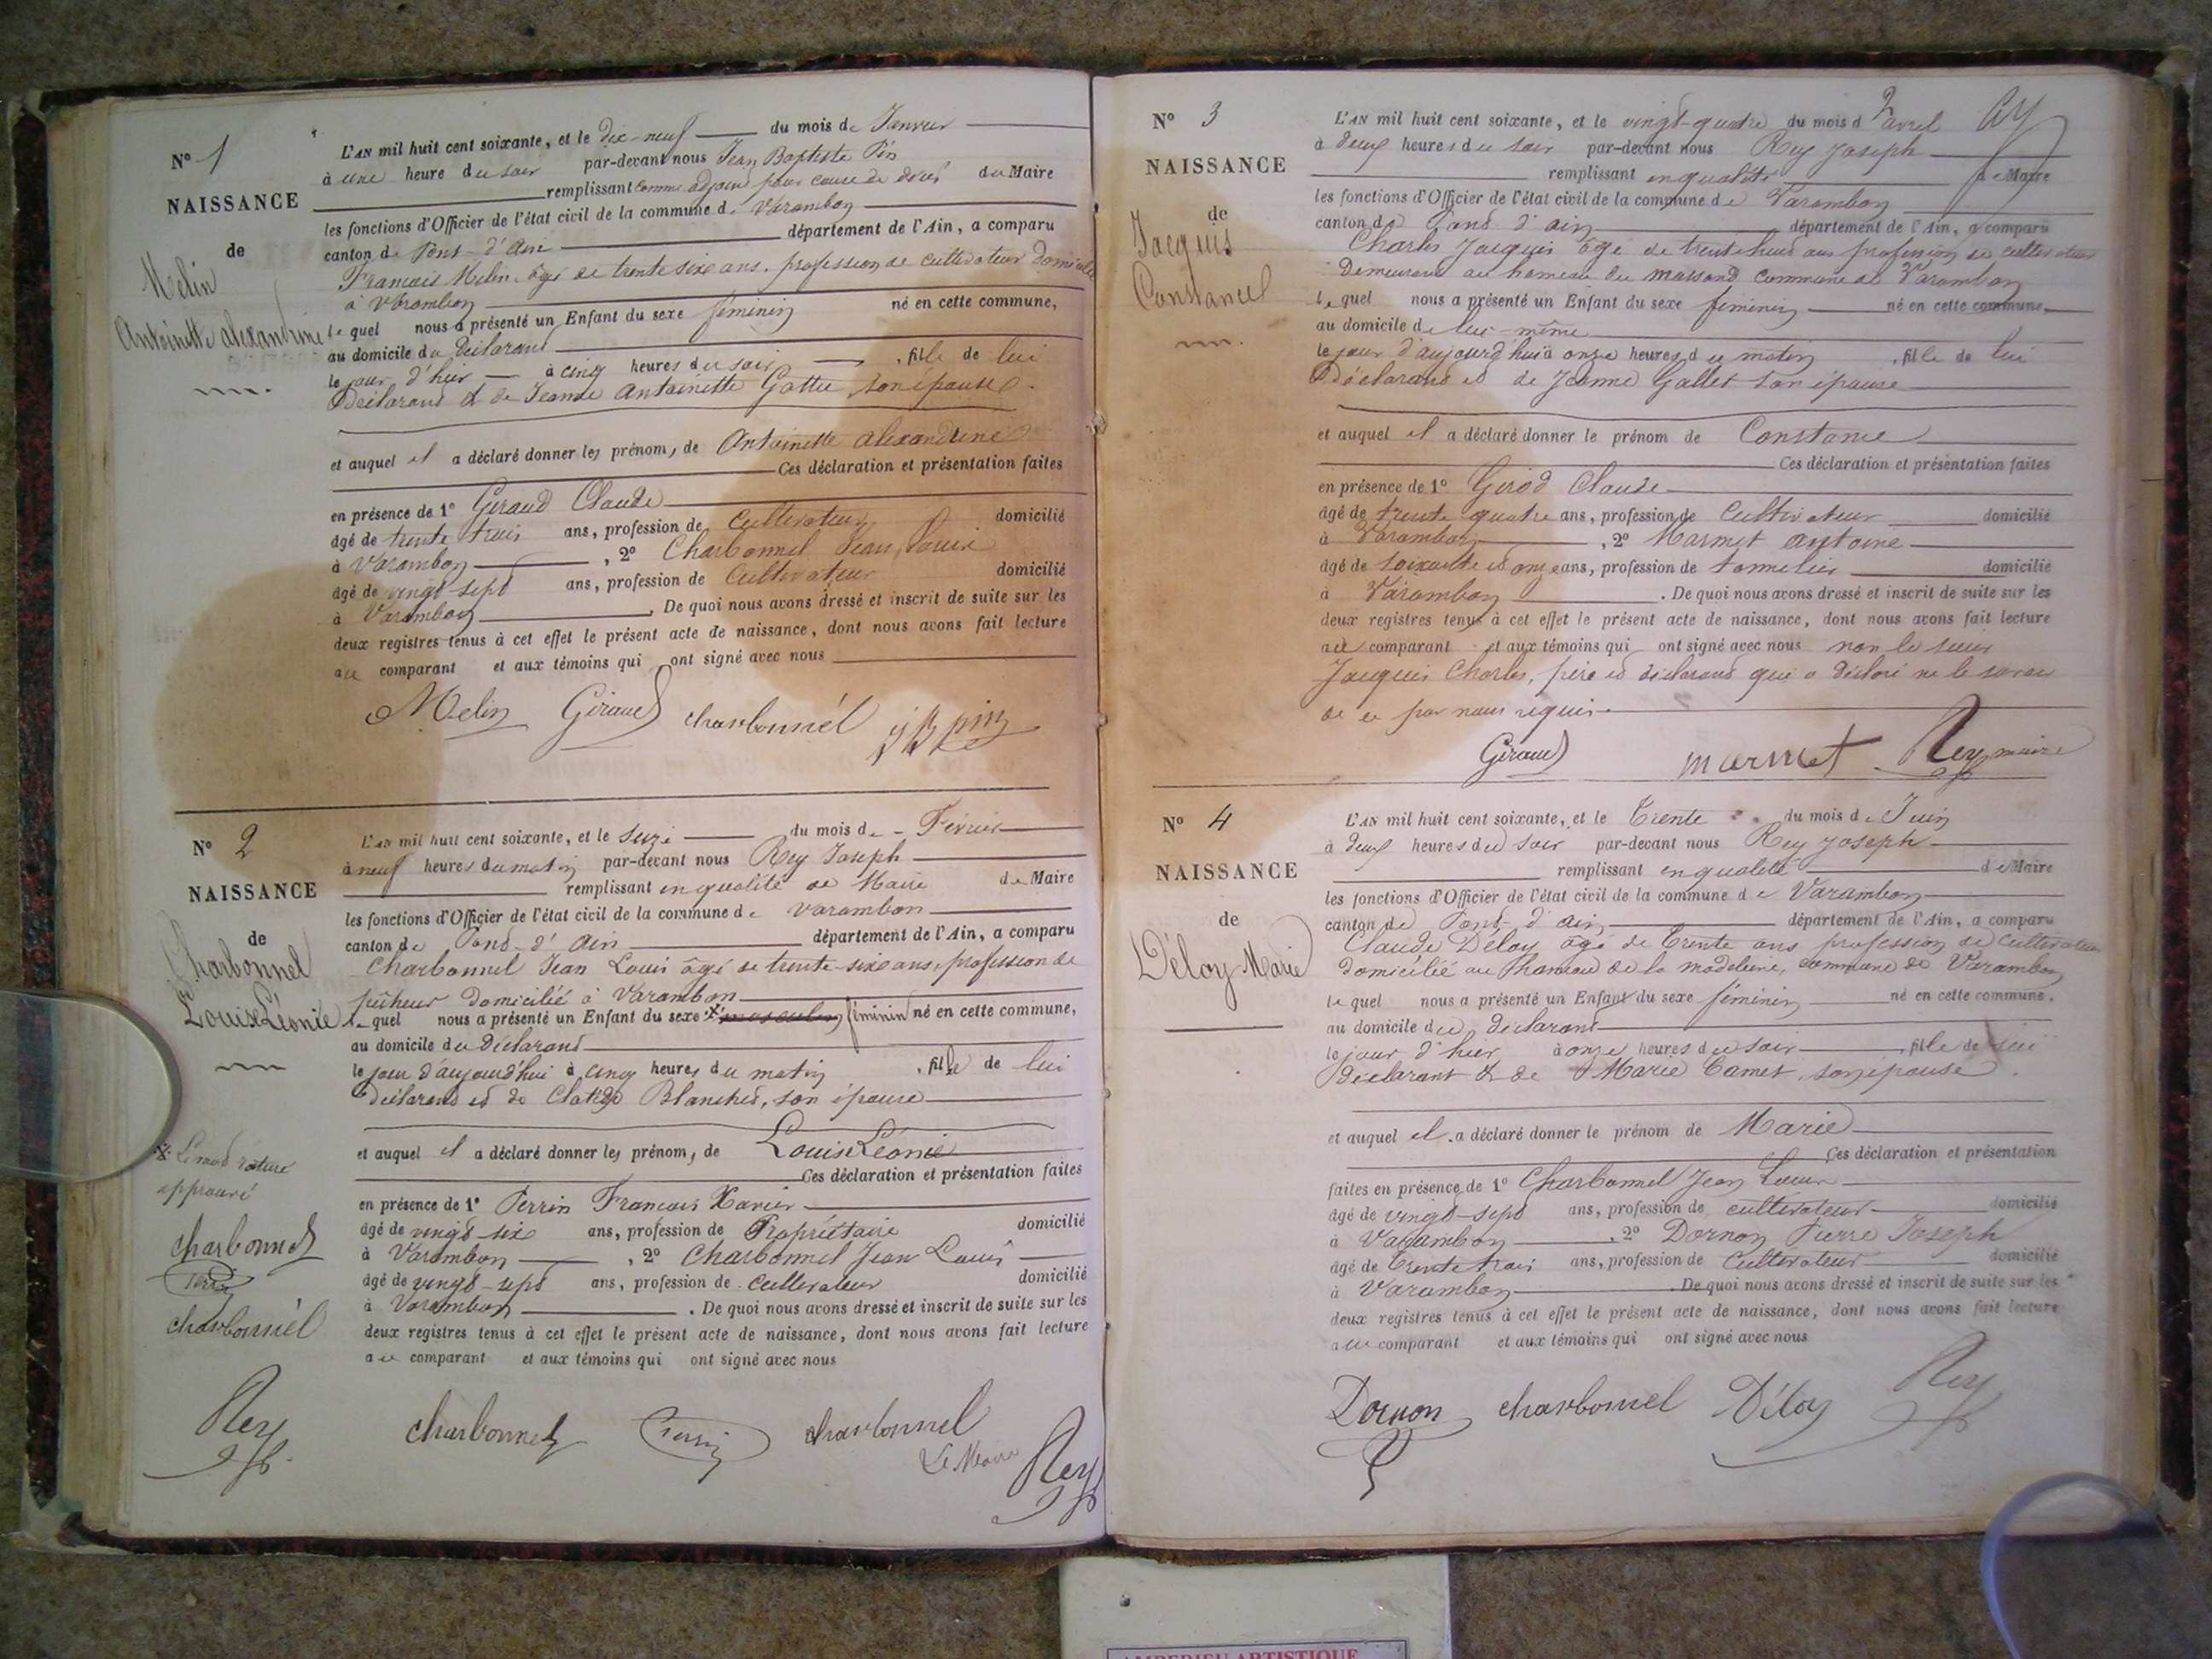 N° 1
NAISSANCE
de
Melin
Antoinette alexandrine
L'AN mil huit cent soixante, et le dix-neuf du mois de Janvier
à une heure du soir par-devant nous Jean Baptiste Pin
remplissant comme adjoint pour cause de décès du Maire
les fonctions d'Officier de l'état civil de la commune de Varambon
canton de Pont-d'ain département de l'Ain, a comparu
Francois Melin âgé de trente six ans, profession de cultivateur domicilié
à Varambon
lequel nous a présenté un Enfant du sexe féminin né en cette commune,
au domicile du Déclarant
le jour d'hier à cinq heures du soir, fille de lui
Déclarant et de Jeanne Antoinette Gottu son épouse
et auquel il a déclaré donner les prénoms de Antoinette alexandrine
Ces déclaration et présentation faites
en présence de 1° Giraud Claude
âgé de trente trois ans, profession de cultivateur domicilié
à Varambon, 2° Charbonnel Jean Louis
âgé de vingt-sept ans, profession de Cultivateur domicilié
à Varambon. De quoi nous avons dressé et inscrit de suite sur les
deux registres tenus à cet effet le présent acte de naissance, dont nous avons fait lecture
au comparant et aux témoins qui ont signé avec nous
Melin Giraud charbonnél JB pin
N° 2
NAISSANCE
de
Charbonnel
Louise Léonie
L'AN mil huit cent soixante, et le seize du mois de Février
à neuf heures du matin par-devant nous Rey Joseph
remplissant en qualité de Maire de Maire
les fonctions d'Officier de l'état civil de la commune de Varambon
canton de Pont-d'Ain département de l'Ain, a comparu
Charbonnel Jean Louis âgé de trente-six ans, profession de
pêcheur domicilié à Varambon
lequel nous a présenté un Enfant du sexe x masculin féminin né en cette commune,
au domicile du Déclarant
le jour d'aujourd'hui à cinq heures du matin, fille de lui
Déclarant et de Blanchet, son épouse
et auquel il a déclaré donner les prénoms de Louise Léonie
Ces déclaration et présentation faites
en présence de 1° Perrin Francois Xavier
âgé de vingt-six ans, profession de Propriétaire domicilié
à Varambon, 2° Charbonnel Jean Louis
âgé de vingt-sept ans, profession de cultivateur domicilié
à Varambon. De quoi nous avons dressé et inscrit de suite sur les
deux registres tenus à cet effet le présent acte de naissance, dont nous avons fait lecture
au comparant et aux témoins qui ont signé avec nous
x Le mot rature
approuvé
charbonnel
Perrin
charbonnél
Rey
charbonnel Perrin charbonnel
Le Maire Rey
N° 3
NAISSANCE
de
Jacquis
Constance
L'AN mil huit cent soixante, et le vingt-quatre du mois d'avril
à deux heures du soir par-devant nous Rey Joseph
remplissant en qualité de Maire
les fonctions d'Officier de l'état civil de la commune de Varambon
canton de Pont d'ain département de l'Ain, a comparu
Charles Jacquis âgé de trente huit ans profession de cultivateur
Demeurant au hameau du commune de Varambon
lequel nous a présenté un Enfant du sexe féminin né en cette commune
au domicile de lui-même
le jour d'aujourd'hui à onze heures du matin, fille de lui
Déclarant et de Jeanne Gallet son épouse
et auquel il a déclaré donner le prénom de Constance
Ces déclaration et présentation faites
en présence de 1° Girod Claude
âgé de trente quatre ans, profession de Cultivateur domicilié
à Varambon, 2° Marmet antoine
âgé de soixante et onze ans, profession de tonnelier domicilié
à Varambon. De quoi nous avons dressé et inscrit de suite sur les
deux registres tenus à cet effet le présent acte de naissance, dont nous avons fait lecture
au comparant et aux témoins qui ont signé avec nous non le sieur
Jacquis Charles, père et déclarant qui a déclaré ne le savoir
de ce par nous requis
Giraud marmet Rey maire
N° 4
NAISSANCE
de
Déloy Marie
L'AN mil huit cent soixante, et le Trente du mois de Juin
à deux heures du soir par-devant nous Rey Joseph
remplissant en qualité de Maire
les fonctions d'Officier de l'état civil de la commune de Varambon
canton de Pont-d'ain département de l'Ain, a comparu
Claude Déloy âgé de trente ans profession de cultivateur
domicilié au hameau de la madeleine, commune de Varambon
lequel nous a présenté un Enfant du sexe féminin né en cette commune,
au domicile du déclarant
le jour d'hier à onze heures du soir, fille de lui
déclarant et de Marie Camet, son épouse
et auquel il a déclaré donner le prénom de Marie
Ces déclaration et présentation
faites en présence de 1° Charbonnel Jean Louis
âgé de vingt-sept ans, profession de cultivateur domicilié
à Varambon, 2° Dornon Pierre Joseph
âgé de trente trois ans, profession de Cultivateur domicilié
à Varambon. De quoi nous avons dressé et inscrit de suite sur les
deux registres tenus à cet effet le présent acte de naissance, dont nous avons fait lecture
au comparant et aux témoins qui ont signé avec nous
Dornon charbonnel Déloy Rey